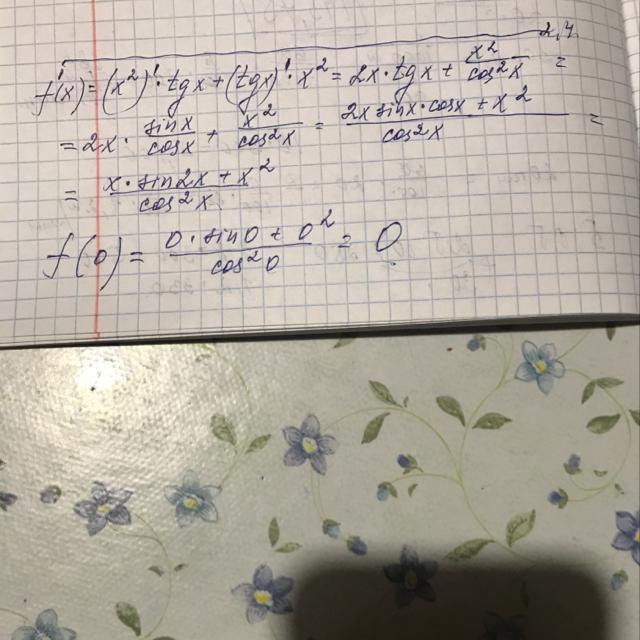 2,4
f'(x) = (x²)' · tgx + (tgx)' · x² = 2x · tgx + x²/cos²x =
= 2x · sinx/cosx + x²/cos²x = (2x sinx · cosx + x²)/cos²x =
= (x · sin2x + x²)/cos²x
f(0) = (0 · sin0 + 0²)/cos²0 = 0